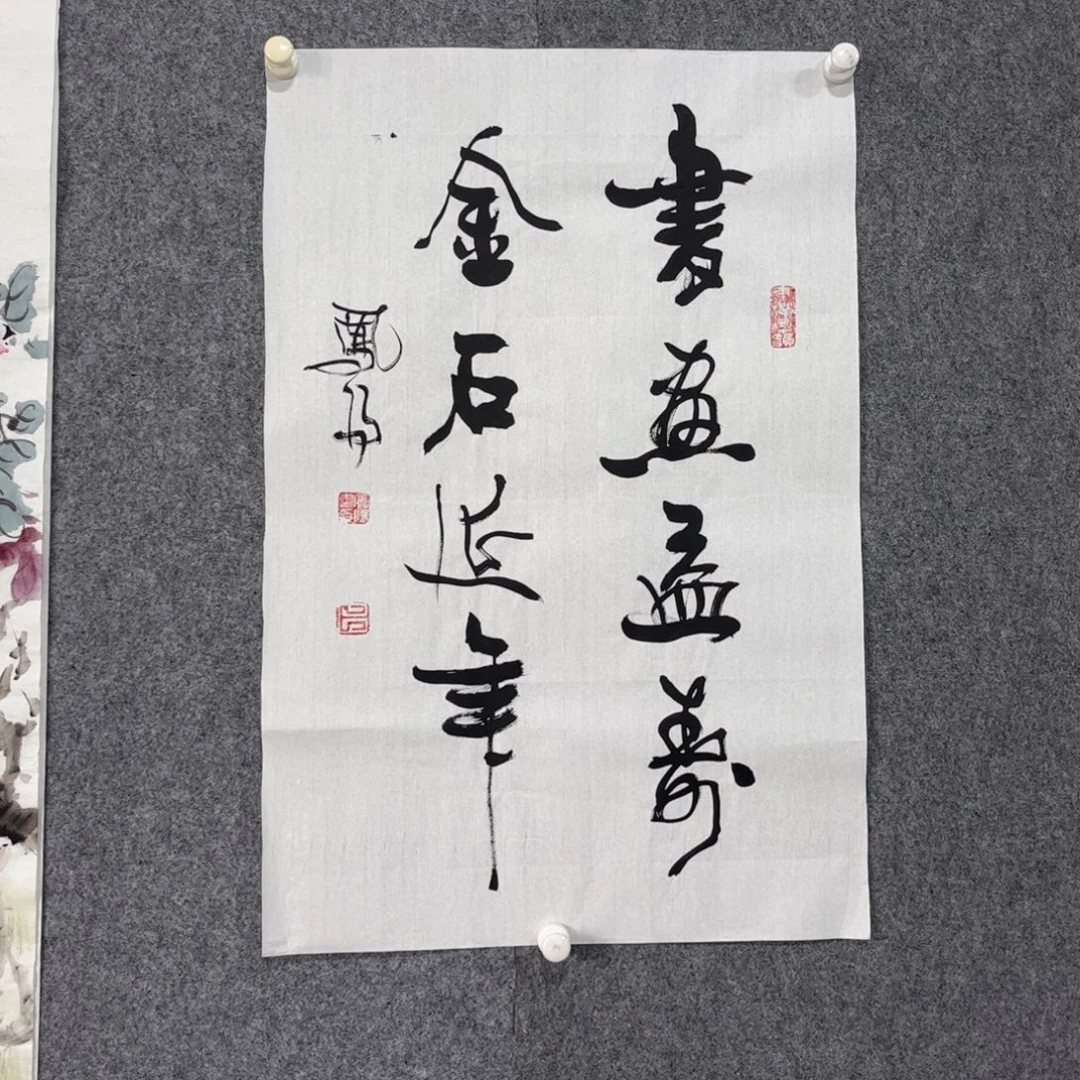 書畫益壽
金石延年